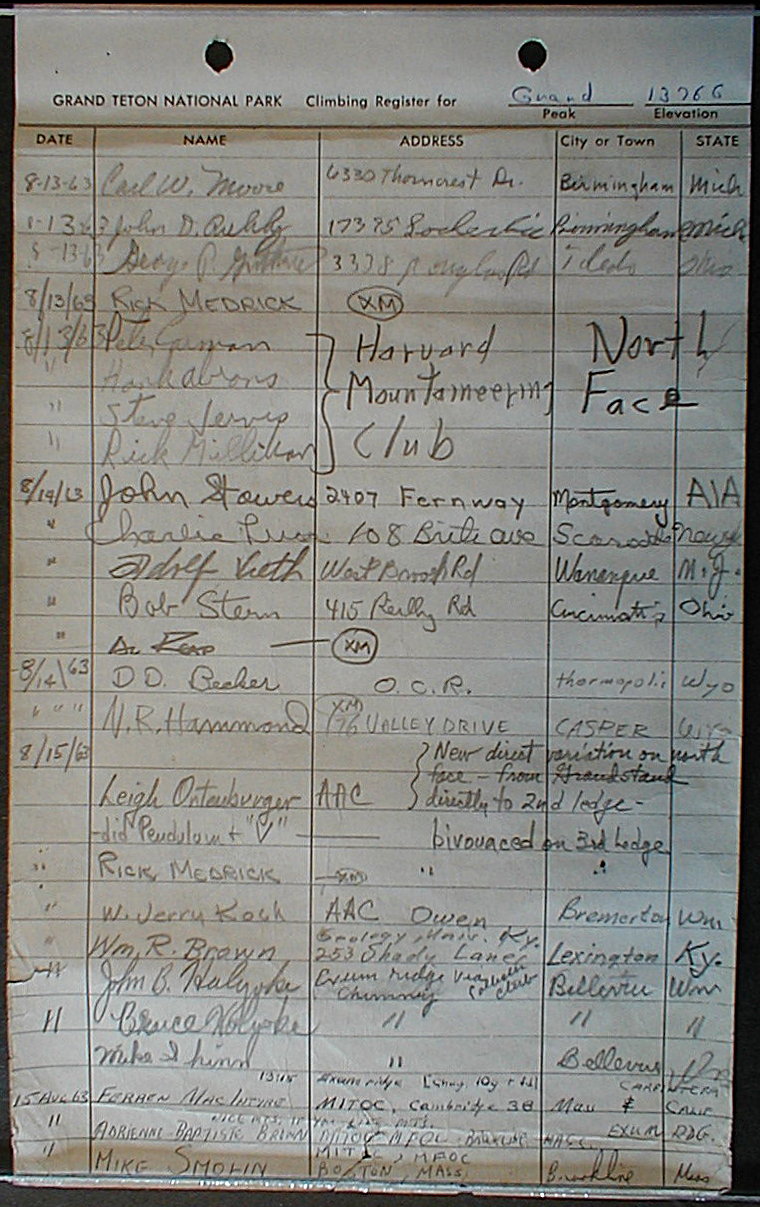 GRAND TETON NATIONAL PARK Climbing Register for Grand 13766
Peak Elevation
DATE NAME ADDRESS City or Town STATE
8-13-63 Carl W. Moore 6330 Thorncrest Dr. Birmingham Mich
8-13-63 John D. 17375 Birmingham Mich
8-13-63 George P. 3378 Douglas Rd Toledo Ohio
8/13/63 RICK MEDRICK XM
8/13/63 Pete Carman Harvard North
" Hank Abrons Mountaineering Face
" Steve Jervis Club
" Rick Millikan
8/14/63 John Stowers 2407 Fernway Montgomery AlA
" Charlie 108 Brite ave
" Adolf Vieth West Brook Rd Wanaque N.J.
" Bob Stern 415 Reilly Rd Cincinnati, Ohio
" Al Read — XM
8/14/63 D.D. Becker O.C.R. thermopolis Wyo
" " " N.R. Hammond XM 176 VALLEY DRIVE CASPER Wyo
8/15/63 New direct variation on north
face - from Grandstand
Leigh Ortenburger AAC directly to 2nd ledge -
did Pendulum + "V" — bivouaced on 3rd ledge
" RICK MEDRICK XM " "
" W. Jerry Koch AAC Owen Bremerton Wn.
Geology, Univ. Ky.
" Wm. R. Brown 253 Shady Lane Lexington Ky.
" John B. Holyoke Exum ridge via Bellevue Wn
Chimney
" Bruce Holyoke " " "
Mike " Bellevue, Wn
Exum ridge
15 AUG 63 FERREN MACINTYRE MITOC, Cambridge 38 Mass & CALIF
" ADRIENNE BAPTISTE BROWN MITOC MFOC BROOKLINE MASS. EXUM RDG.
MITOC, MFOC
" MIKE SMOLIN BOSTON, MASS. Brookline Mass